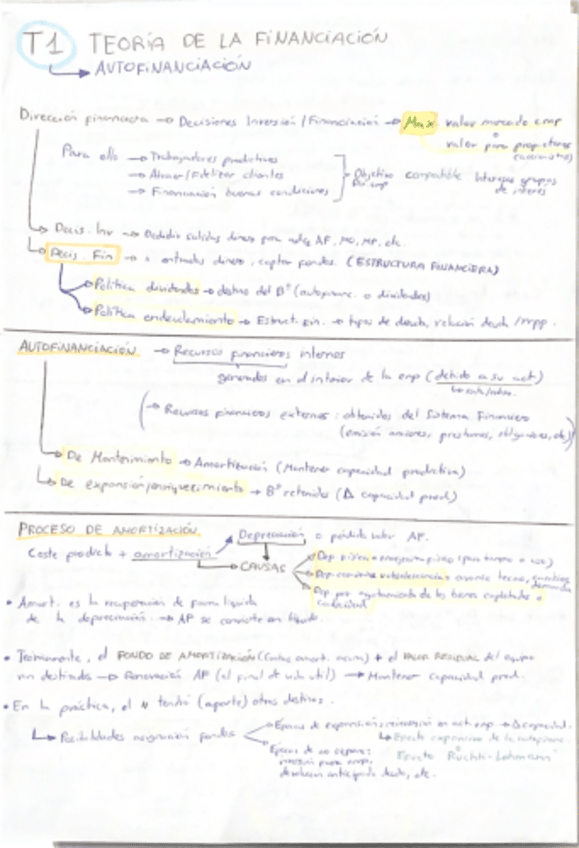 T1 TEORÍA DE LA FINANCIACIÓN
→ AUTOFINANCIACIÓN
Dirección financiera → Decisiones Inversión / Financiación → Max valor mercado emp
o
valor para propietarios
(accionistas)
Para ello → Trabajadores productivos
→ Atraer / Fidelizar clientes
→ Financiación buenas condiciones
Objetivo compatible intereses grupos
de interés
→ Decis. Inv → Decidir salidas dinero para AF, MO, MP, etc.
→ Decis. Fin → entradas dinero, captar fondos. (ESTRUCTURA FINANCIERA)
→ Política dividendos → destino del Bº (autofinanc. o dividendos)
→ Política endeudamiento → Estruct. Fin. → tipos de deuda, relación deuda / rrpp.
AUTOFINANCIACIÓN → Recursos financieros internos
generados en el interior de la emp (debido a su act)
(→ Recursos financieros externos: obtenidos del Sistema Financiero
(emisión acciones, préstamos, obligaciones, etc))
→ De Mantenimiento → Amortización (Mantener capacidad productiva)
→ De expansión/enriquecimiento → Bº retenidos (Δ capacidad prod.)
PROCESO DE AMORTIZACIÓN
Depreciación o pérdida valor AF.
Coste producto + amortización
→ CAUSAS
Dep. física → envejecim. físico (paso tiempo o uso)
Dep. económica u obsolescencia → avance tecno,
demanda
Dep. por agotamiento de los bienes explotados o
caducidad
• Amort. es la recuperación de forma líquida
de la depreciación → AF se convierte en líquido.
• Teóricamente, el FONDO DE AMORTIZACIÓN (cuotas amort. acum) + el VALOR RESIDUAL del equipo
van destinados → Renovación AF (al final de vida útil) → Mantener capacidad prod.
• En la práctica, el " tendrá (aparte) otros destinos.
→ Posibilidades asignación fondos
Épocas de expansión: reinversión en act. emp → Δ capacidad.
→ Efecto expansivo de la autofinanc.
Efecto Ruchti-Lohmann
Épocas de no expans:
devolución anticipada deuda, etc.